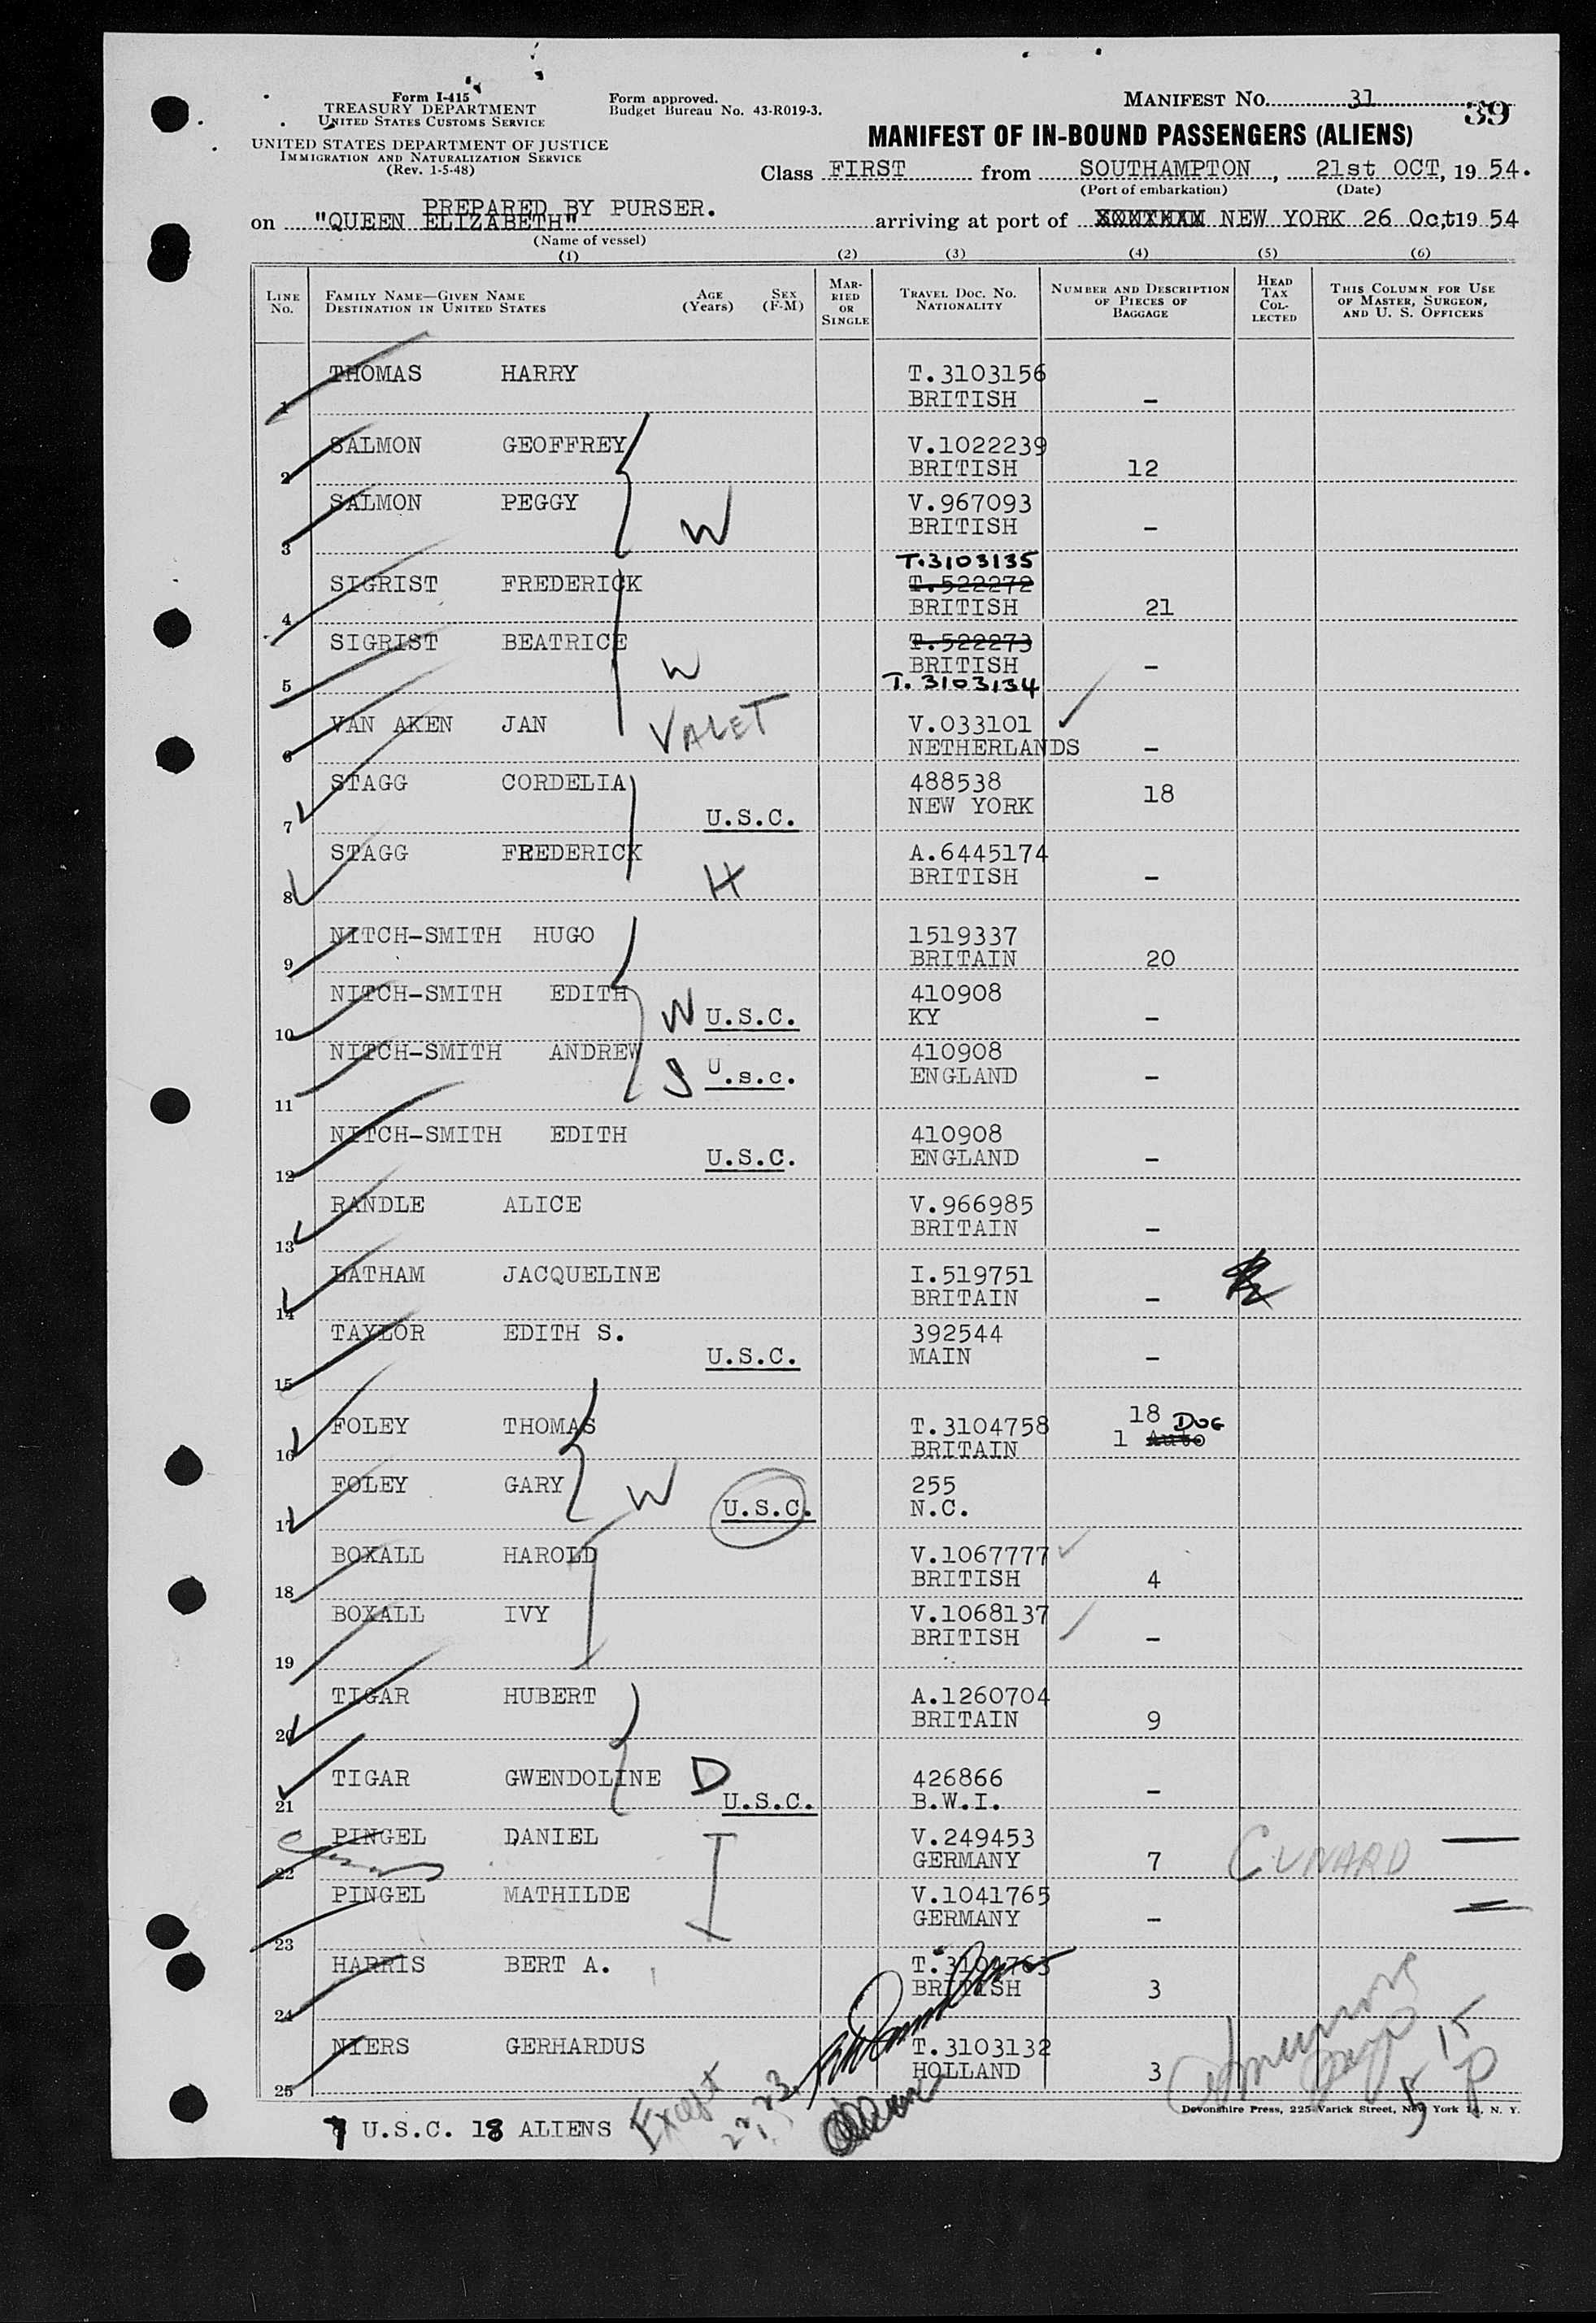 Form I-415
TREASURY DEPARTMENT
UNITED STATES CUSTOMS SERVICE
UNITED STATES DEPARTMENT OF JUSTICE
IMMIGRATION AND NATURALIZATION SERVICE
(Rev. 1-5-48)
Form approved.
Budget Bureau No. 43-R019-3.
MANIFEST NO. 31
39
MANIFEST OF IN-BOUND PASSENGERS (ALIENS)
Class FIRST from SOUTHAMPTON, 21st OCT, 19 54.
(Port of embarkation) (Date)
PREPARED BY PURSER.
on "QUEEN ELIZABETH" arriving at port of NEW YORK 26 Oct, 19 54
(Name of vessel)
(1) (2) (3) (4) (5) (6)
LINE NO. FAMILY NAME—GIVEN NAME DESTINATION IN UNITED STATES AGE (Years) SEX (F-M) MARRIED OR SINGLE TRAVEL DOC. NO. NATIONALITY NUMBER AND DESCRIPTION OF PIECES OF BAGGAGE HEAD TAX COLLECTED THIS COLUMN FOR USE OF MASTER, SURGEON, AND U. S. OFFICERS
THOMAS HARRY T.3103156
1 BRITISH –
SALMON GEOFFREY V.1022239
2 BRITISH 12
SALMON PEGGY V.967093
3 W BRITISH –
T.3103135
SIGRIST FREDERICK T.522272
4 BRITISH 21
SIGRIST BEATRICE T.522273
5 W BRITISH –
T. 3103134
VAN AKEN JAN VALET V.033101
6 NETHERLANDS –
STAGG CORDELIA 488538
7 U.S.C. NEW YORK 18
STAGG FREDERICK A.6445174
8 H BRITISH –
NITCH-SMITH HUGO 1519337
9 BRITAIN 20
NITCH-SMITH EDITH 410908
10 W U.S.C. KY –
NITCH-SMITH ANDREW 410908
11 S U.s.c. ENGLAND –
NITCH-SMITH EDITH 410908
12 U.S.C. ENGLAND –
RANDLE ALICE V.966985
13 BRITAIN –
LATHAM JACQUELINE I.519751
14 BRITAIN –
TAYLOR EDITH S. 392544
15 U.S.C. MAIN –
FOLEY THOMAS T.3104758 18 DOG
16 BRITAIN 1 Auto
FOLEY GARY 255
17 W U.S.C. N.C.
BOXALL HAROLD V.1067777
18 BRITISH 4
BOXALL IVY V.1068137
19 BRITISH –
TIGAR HUBERT A.1260704
20 BRITAIN 9
TIGAR GWENDOLINE D 426866
21 U.S.C. B.W.I. –
PINGEL DANIEL V.249453
22 GERMANY 7 CUNARD
PINGEL MATHILDE V.1041765
23 GERMANY –
HARRIS BERT A.
24 BRITISH 3
NIERS GERHARDUS T.3103132
25 HOLLAND 3
15
5
Devonshire Press, 225 Varick Street, New York 14, N. Y.
7 U.S.C. 18 ALIENS Except 22, 23